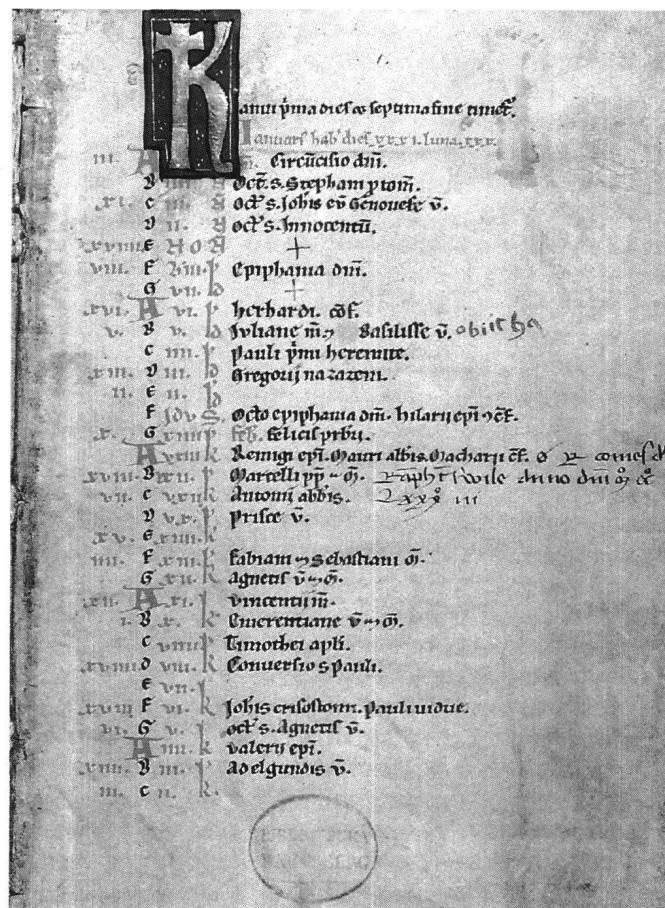 K
Ianuí príma dies et septima fine timet᷑.
Ianuars hab' dies xxxi. luna. xxx.
iii. A Círcūcisio dm̄.
B iiii. Oct̄. s. Stephani ꝓtom̄.
xi. C iii. Oct̄ s. Joh̄is eṽ Genouefe v̄.
D ii. Oct̄ s. Innocentū.
xviiii E NON +
viii. F viii. Epiphania dm̄.
G vii. +
xvi. A vi. herhardi. cōf.
v. B v. Juliane m̄ ⁊ Basilisse v̄. obiit ha
C iiii. Pauli p̄mi heremite.
xiii. D iii. Gregorij nazazeni.
ii. E ii.
F Idus Octo epiphania dm̄. hilarii ep̄i ⁊ c̄f.
x. G xviiii felicis prbri.
A xviii Remigi ep̄i. Mauri abbis. Macharii c̄f. comes d
xviii. B xvii. Martelli pp̄ ⁊ m̄. anno dm̄
vii. C xvi Antonii abbis. Lxxx iii
D xv. Prisce v̄.
xv. E xiiii
iiii. F xiii. fabiani ⁊ Sebastiani m̄.
G xii. Agnetis v̄ ⁊ m̄.
xii. A xi. vincentii m̄.
i. B x. Emerentiane v̄ ⁊ m̄.
C viiii Timothei apl̄i.
xviiii d viii. Conversio s Pauli.
E vii.
xvii F vi. Joh̄is crisostomi. Pauli vidue.
vi. G v. Oct̄ s. Agnetis v̄.
A iiii. valerii ep̄i.
xiiii. B iii. Adelgundis v̄.
iii. C ii.